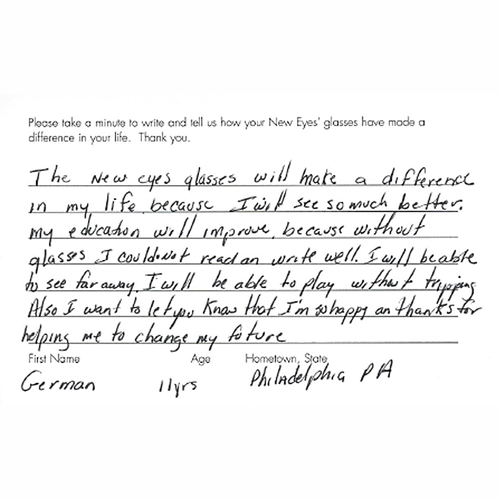 Please take a minute to write and tell us how your New Eyes' glasses have made a
difference in your life. Thank you.
The new eyes glasses will make a difference
in my life, because I will see so much better.
my education will improve, because without
glasses I could not read an write well. I will be able
to see far away. I will be able to play without tripping
Also I want to let you know that I'm so happy an thanks for
helping me to change my future
First Name Age Hometown, State
German 11yrs Philadelphia PA